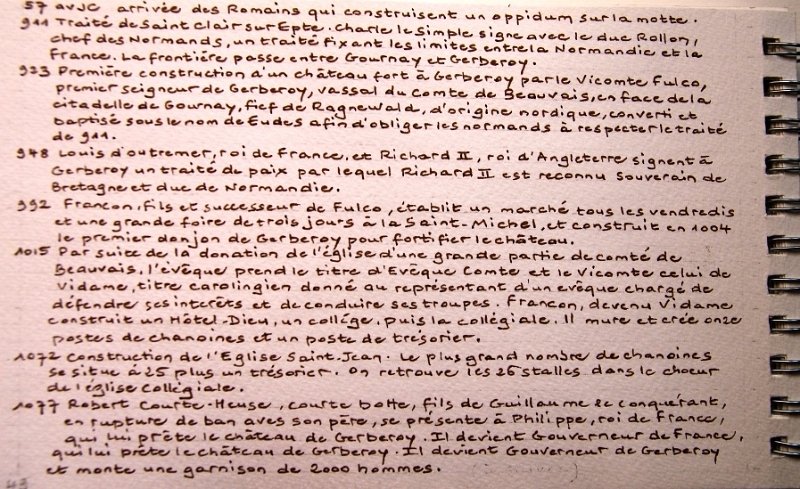 57 av JC arrivée des Romains qui construisent un oppidum sur la motte.
911 Traité de Saint Clair sur Epte. Charle le Simple signe avec le duc Rollon,
chef des Normands, un traité fixant les limites entre la Normandie et la
France. La frontière passe entre Gournay et Gerberoy.
923 Première construction d'un château fort à Gerberoy par le Vicomte Fulco,
premier seigneur de Gerberoy, vassal du Comte de Beauvais, en face de la
citadelle de Gournay, fief de Ragnewald, d'origine nordique, converti et
baptisé sous le nom de Eudes afin d'obliger les normands à respecter le traité
de 911.
948 Louis d'outremer, roi de France, et Richard II, roi d'Angleterre signent à
Gerberoy un traité de paix par lequel Richard II est reconnu souverain de
Bretagne et duc de Normandie.
992 Francon, fils et successeur de Fulco, établit un marché tous les vendredis
et une grande foire de trois jours à la Saint-Michel, et construit en 1004
le premier donjon de Gerberoy pour fortifier le château.
1015 Par suite de la donation de l'église d'une grande partie de comté de
Beauvais, l'évêque prend le titre d'Evêque Comte et le Vicomte celui de
Vidame, titre carolingien donné au représentant d'un evêque chargé de
défendre ses interêts et de conduire ses troupes. Francon, devenu Vidame
construit un Hôtel-Dieu, un collége, puis la collégiale. Il mure et crée onze
postes de chanoines et un poste de trésorier.
1072 Construction de l'Eglise Saint-Jean. Le plus grand nombre de chanoines
se situe à 25 plus un trésorier. On retrouve les 26 stalles dans le choeur
de l'église Collégiale.
1077 Robert Courte-Heuse, courte botte, fils de Guillaume le conquérant,
en rupture de ban aves son père, se présente à Philippe, roi de France,
qui lui prête le château de Gerberoy. Il devient Gouverneur de France,
qui lui prête le château de Gerberoy. Il devient Gouverneur de Gerberoy
et monte une garnison de 2000 hommes.